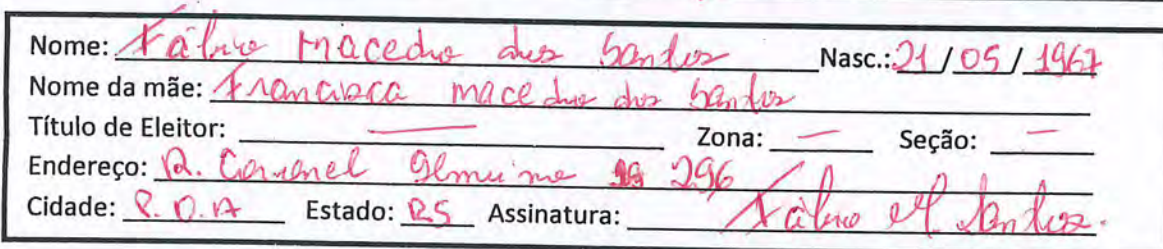 Nome: Fábio Macedo dos Santos Nasc.: 21/05/1967
Nome da mãe: Francisca macedo dos Santos
Título de Eleitor: — Zona: — Seção: —
Endereço: R. Coronel 296
Cidade: P.O.A Estado: RS Assinatura: Fábio M. Santos.